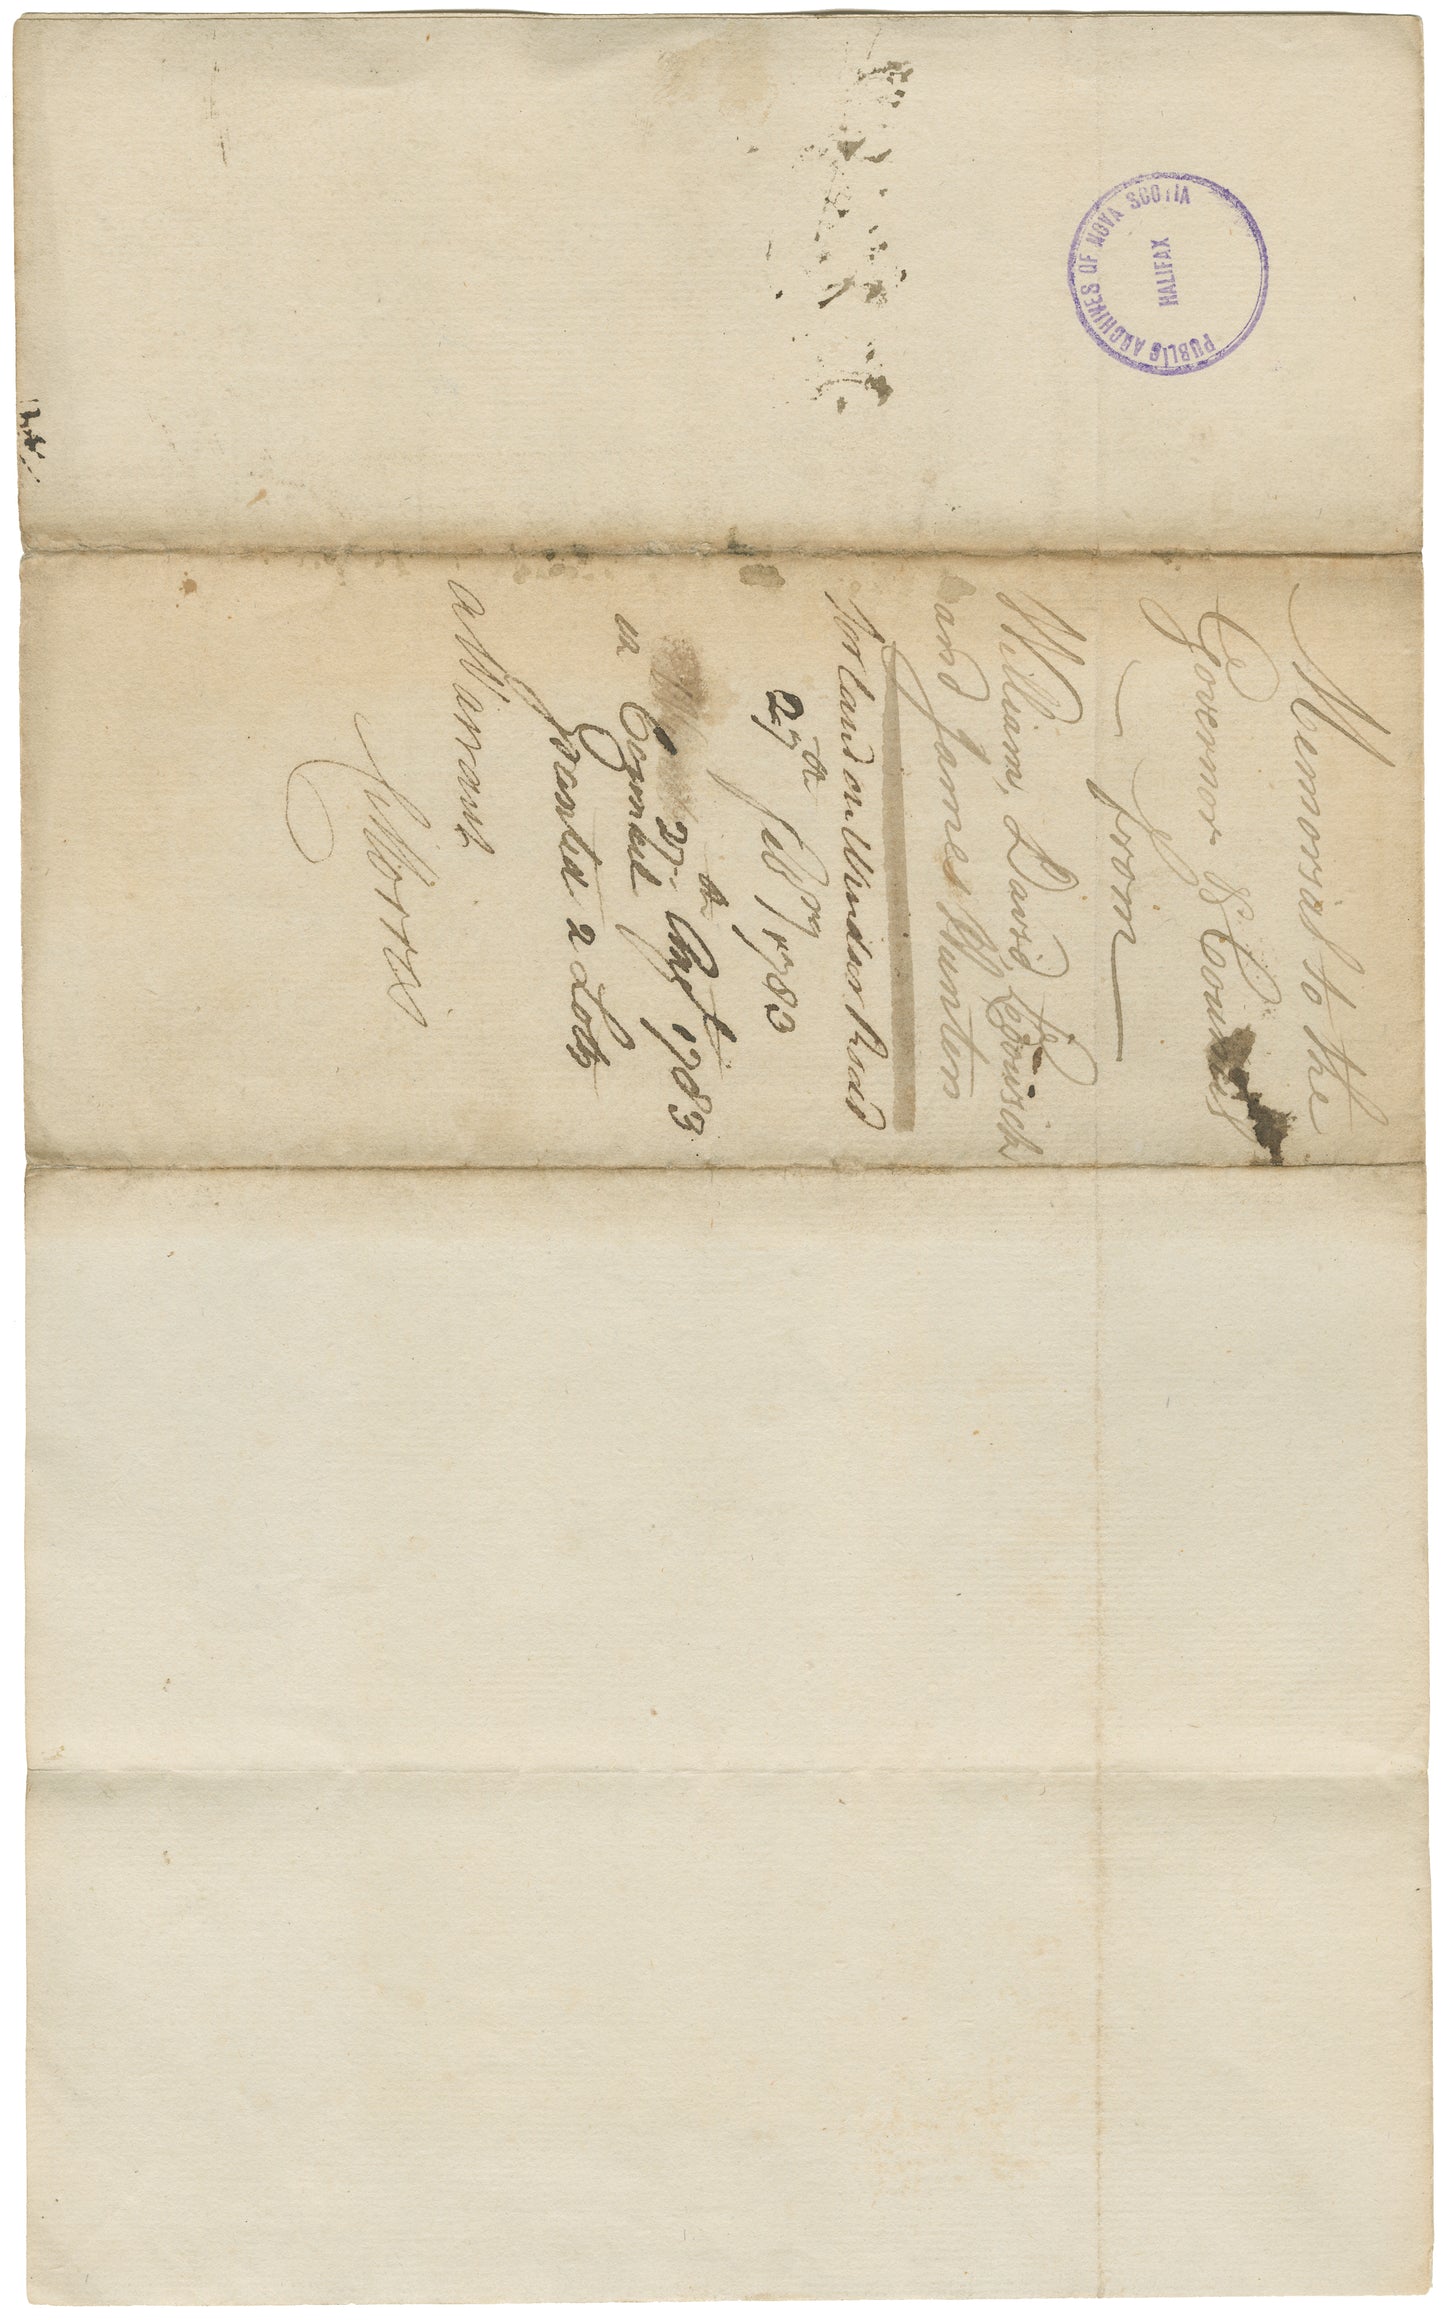 PUBLIC ARCHIVES OF NOVA SCOTIA
HALIFAX
Memorial to the
Governor & Council
from
William, David,
and James Hunter
for land on Windsor Road
27th Feb'ry 1783
27th Augt 1783
in Council
Granted 2 Lotts
a Warrant